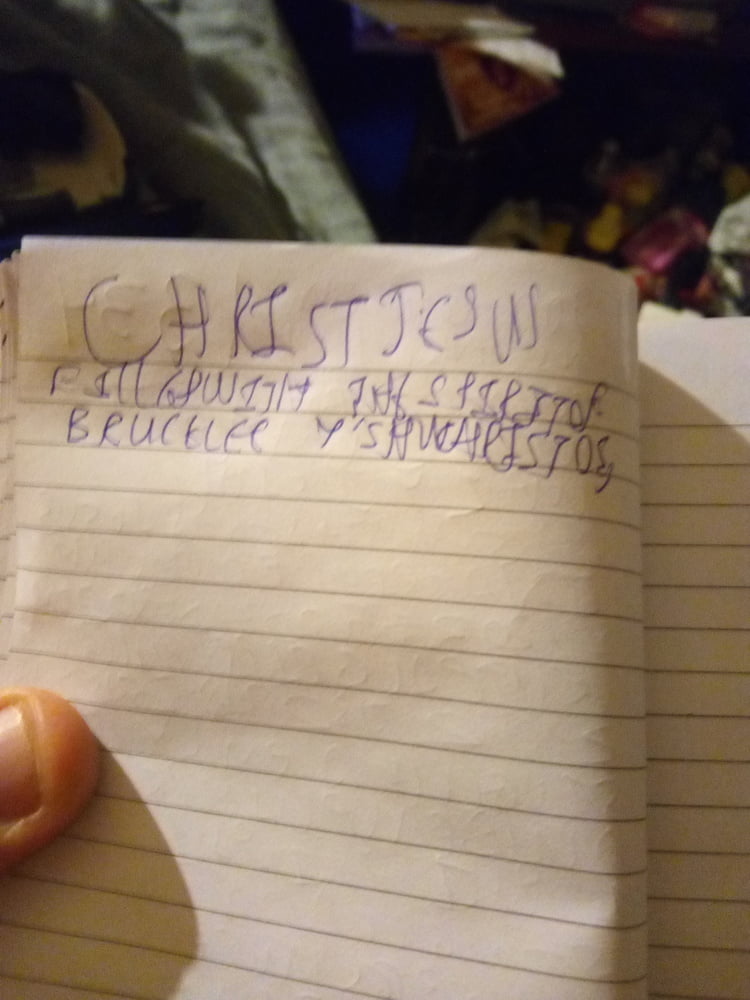 CHRIST JESUS
FILLEDWITH THE SPIRITOF
BRUCELEE Y'SHUCHRISTOS,